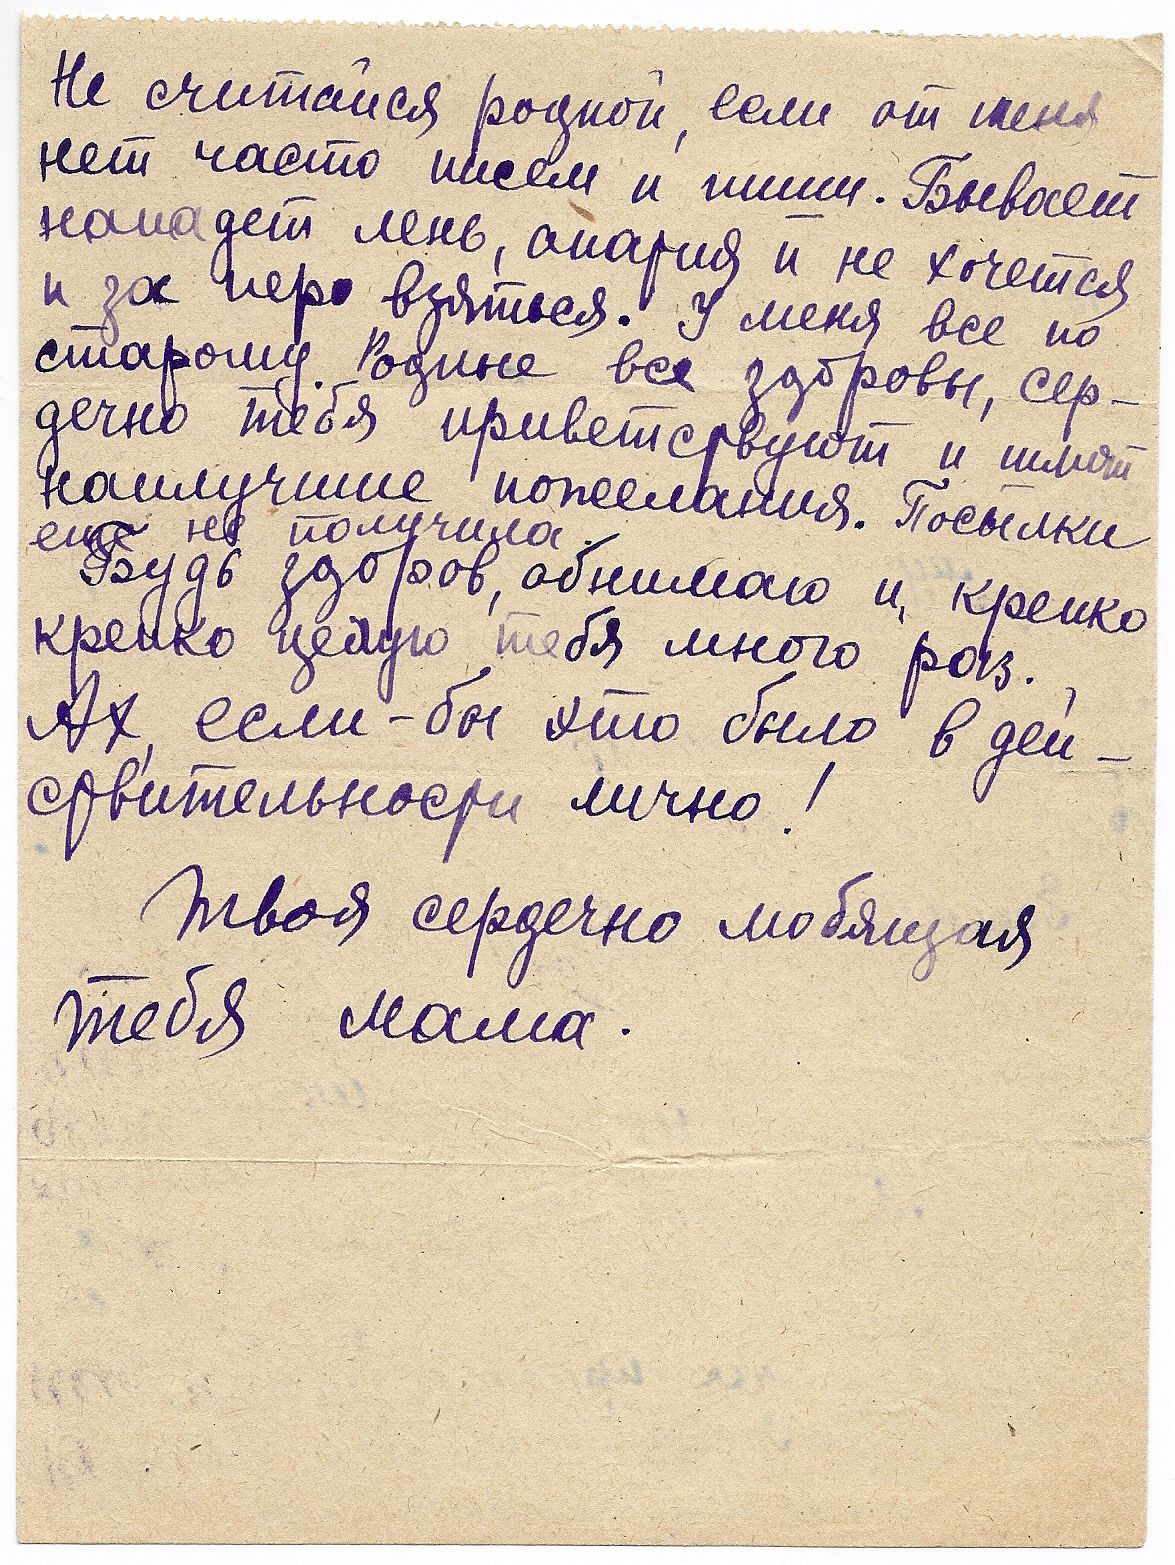 Не считайся родной, если от меня
нет часто писем и пиши. Бывает
нападет лень, апатия и не хочется
и за перо взяться. У меня все по
старому. Родные все здоровы, сер-
дечно тебя приветствуют и шлют
наилучшие пожелания. Посылки
еще не получила.
Будь здоров, обнимаю и, крепко
крепко целую тебя много раз.
Ах, если-бы это было в дей-
ствительности лично!
Твоя сердечно любящая
тебя мама.